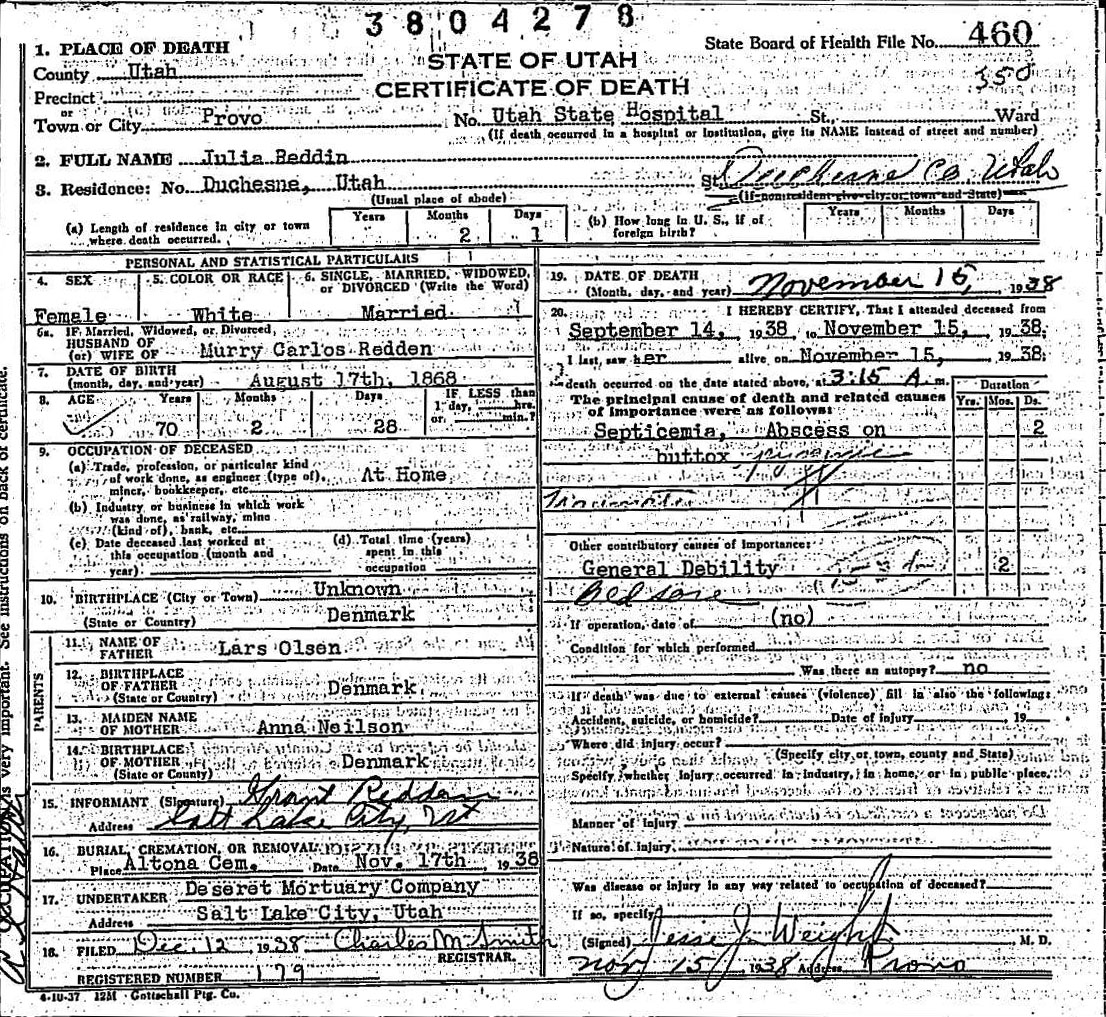 3804278
State Board of Health File No. 460
350
1. PLACE OF DEATH
STATE OF UTAH
CERTIFICATE OF DEATH
County Utah
Precinct
or
Town or City Provo No. Utah State Hospital St., Ward
(If death occurred in a hospital or institution, give its NAME instead of street and number)
2. FULL NAME Julia Reddin
3. Residence: No. Duchesne, Utah St. Duchesne Co. Utah
(Usual place of abode) (If nonresident give city or town and State)
(a) Length of residence in city or town where death occurred. Years Months 2 Days 1
(b) How long in U. S., if of foreign birth? Years Months Days
PERSONAL AND STATISTICAL PARTICULARS
4. SEX Female
5. COLOR OR RACE White
6. SINGLE, MARRIED, WIDOWED, or DIVORCED (Write the Word) Married
6a. IF Married, Widowed, or Divorced,
HUSBAND OF
(or) WIFE OF Murry Carlos Redden
7. DATE OF BIRTH
(month, day, and year) August 17th, 1868
8. AGE Years 70 Months 2 Days 28 IF LESS than 1 day, hrs. or min.?
9. OCCUPATION OF DECEASED
(a) Trade, profession, or particular kind
of work done, as engineer (type of), At Home
miner, bookkeeper, etc.
(b) Industry or business in which work
was done, as railway, mine
(kind of), bank, etc.
(c) Date deceased last worked at this occupation (month and year)
(d) Total time (years) spent in this occupation
10. BIRTHPLACE (City or Town) Unknown
(State or Country) Denmark
PARENTS
11. NAME OF FATHER Lars Olsen
12. BIRTHPLACE OF FATHER
(State or Country) Denmark
13. MAIDEN NAME OF MOTHER Anna Neilson
14. BIRTHPLACE OF MOTHER
(State or Country) Denmark
15. INFORMANT (Signature) Grant Redden
Address Salt Lake City, Ut
16. BURIAL, CREMATION, OR REMOVAL
Place Altona Cem. Date Nov. 17th 1938
17. UNDERTAKER Deseret Mortuary Company
Address Salt Lake City, Utah
18. FILED Dec. 12 1938 Charles M. Smith
REGISTRAR.
REGISTERED NUMBER 179
4-10-37 12M Gottschall Ptg. Co.
19. DATE OF DEATH
(Month, day, and year) November 15, 1938
20. I HEREBY CERTIFY, That I attended deceased from
September 14, 1938 to November 15, 1938.
I last saw her alive on November 15, 1938;
death occurred on the date stated above, at 3:15 A. m.
The principal cause of death and related causes of importance were as follows:
Duration
Yrs. Mos. Ds.
Septicemia, Abscess on 2
buttox
Other contributory causes of importance:
General Debility 2
Bed sore
If operation, date of (no)
Condition for which performed
Was there an autopsy? no
If death was due to external causes (violence) fill in also the following:
Accident, suicide, or homicide? Date of injury 19
Where did injury occur?
(Specify city or town, county and State)
Specify whether injury occurred in industry, in home, or in public place.
Manner of injury
Nature of injury
Was disease or injury in any way related to occupation of deceased?
If so, specify
(Signed) Jesse J. Weight M. D.
Nov 15 1938 Address Provo
OCCUPATION is very important. See instructions on back of certificate.